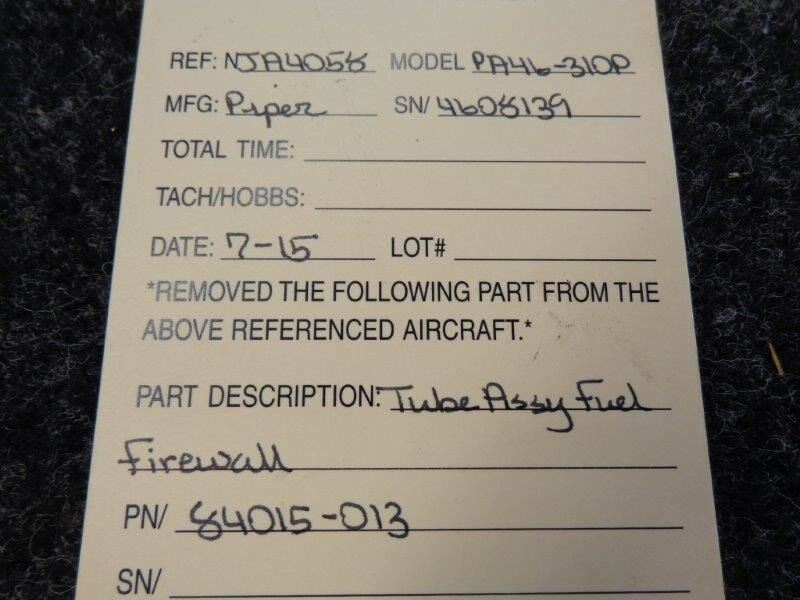 REF: NJA4058 MODEL PA46-310P
MFG: Piper SN/ 4608139
TOTAL TIME:
TACH/HOBBS:
DATE: 7-15 LOT#
*REMOVED THE FOLLOWING PART FROM THE
ABOVE REFERENCED AIRCRAFT.*
PART DESCRIPTION: Tube Assy Fuel
Firewall
PN/ 84015-013
SN/